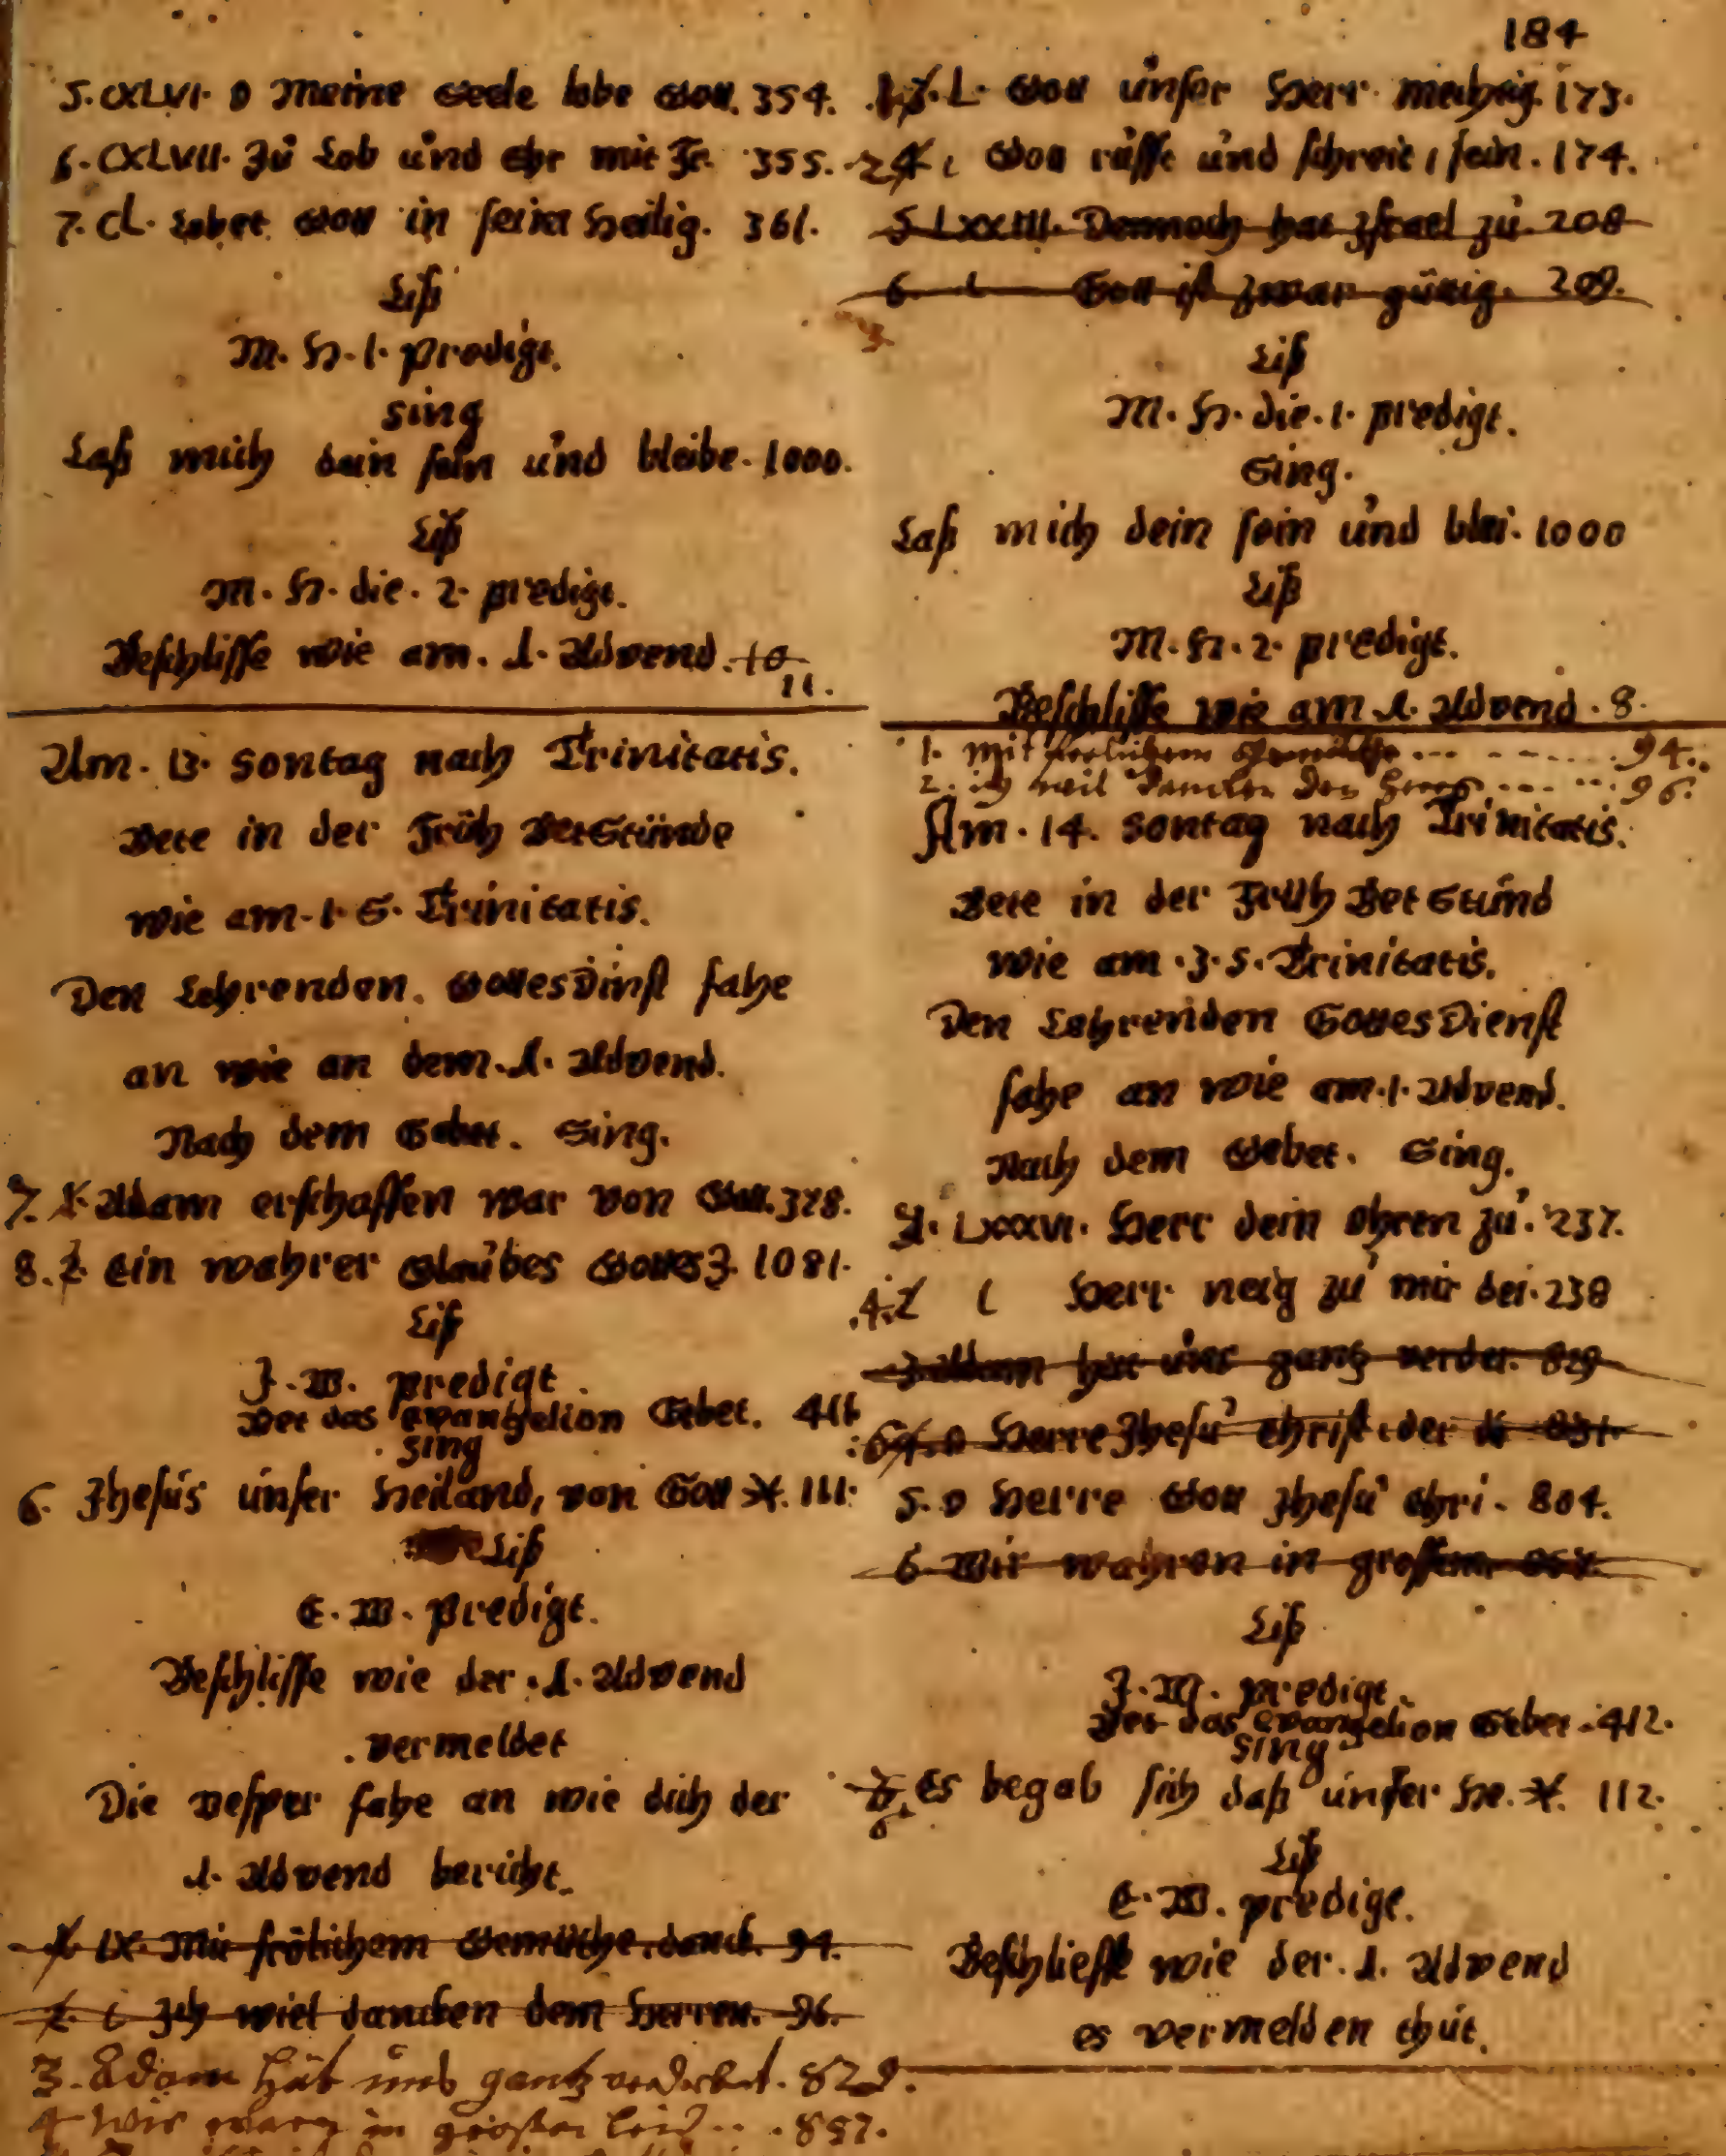 5. CXLVI. O Meine Seele lobe Gott. 354.
6. CXLVII. Zů Lob ůnd Ehr mit Fr. 355.
7. CL. Lobet Gott in seiner Heilig. 361.
Liß
M. H. 1. predigt.
Sing
Laß mich dein sein ůnd bleibe. 1000.
Liß
M. H. die. 2. predigt.
Beschlisse wie am. 1. Advend. 10
11.
Am. 13. Sontag nach Trinitatis.
Bete in der Früh BetStünde
wie am. 1 S. Trinitatis.
Den Lehrenden. Gottesdinst fahe
an wie an dem. 1. Advend.
Nach dem Gebet. Sing.
7. 1. Adam erschaffen war von Gott. 378.
8. 2. Ein wahrer Glaůbes Gottes Z. 1081.
Liß
J. W. predigt.
Bet das Evangelion Gebet. 411
Sing
6. Jhesůs ůnser Heiland, von Gott X. 111.
Liß
E. W. predigt.
Beschlisse wie der. 1. Advend
vermeldet
Die Vesper fahe an wie dich der
1. Advend bericht.
1. IX. Mit frölichem Gemüthe. danck. 94.
2. Ich wiel dancken dem Herren. 96.
3. Adam hat uns gantz verderbet. 829.
4 Wir waren in großen leid... 857.
184
L. Gott ůnser Herr mechtig. 173.
2 4. Gott růfft ůnd schreit, sein. 174.
5 LXXIII. Dennoch hat Israel zů. 208
6. Gott ist zwar gütig. 209.
Liß
M. H. die. 1. predigt.
Sing.
Laß mich dein sein ůnd blei. 1000
Liß
M. H. 2. predigt.
Beschlisse wie am 1. Advend. 8.
1. mit frölichem Gemüthe ... 94.
2. ich weil dancken den Herrn ... 96.
Am. 14. Sontag nach Trinitatis.
Bete in der Früh Bet Stůnd
wie am. 3. S. Trinitatis.
Den Lehrenden GottesDienst
fahe an wie am. 1. Advend.
Nach dem Gebet. Sing.
LXXXVI. Herr dein Ohren zů. 237.
4. 2 Herr neig zů mir dei. 238
3 Adam hat ůns gantz verder. 829
O Herre Jhesů Christ, der 831
5. O Herre Gott Jhesů Chri. 804.
6 Wir wahren in grossem 857.
Liß
J. W. predigt.
Bet das Evangelion Gebet. 412.
Sing
Es begab sich daß ůnser He. X. 112.
Liß
E. W. predigt.
Beschliesse wie der. 1. Advend
es vermelden thůt.